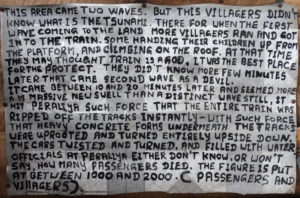 THIS AREA CAME TWO WAVES. BUT THIS VILLAGERS DIDN'T
KNOW WHAT IS THE TSUNAMI. THERE FOR WHEN THE FIRST
WAVE COMING TO THE LAND MORE VILLAGERS RAN AND GOT
IN TO THE TRAIN. SOME HANDING THEIR CHILDREN UP FROM
THE PLATFORM, AND CLIMBING ON THE ROOF. AT THAT TIME
THEY MAY THOUGHT TRAIN IS A GOD. IT WAS THE BEST PLACE
FOR THE PROTECT. THEY DID'T KNOW MORE FEW MINUTES
LATER THAT CAME SECOND WAVE AS A DEVIL.
IT CAME BETWEEN 10 AND 20 MINUTES LATER AND SEEMED MORE
A MASSIVE NEW SWELL THAN A DISTINCT WAVE STILL, IT
HIT PERALIYA SUCH FORCE THAT THE ENTIRE TRAIN WAS
RIPPED OFF THE TRACKS INSTANTLY-WITH SUCH FORCE
THAT HEAVY CONCRETE FORMS UNDERNEATH THE TRACK
WERE UPROOTED AND TURNED ENTIRELY UPSIDE DOWN.
THE CARS TWISTED AND TURNED, AND FILLED WITH WATER
OFFICIALS AT PERALIYA EITHER DON'T KNOW, OR WON'T
SAY, HOW MANY PASSENGERS DIED. THE FIGURE IS PUT
AT BETWEEN 1000 AND 2000. ( PASSENGERS AND
VILLAGERS)